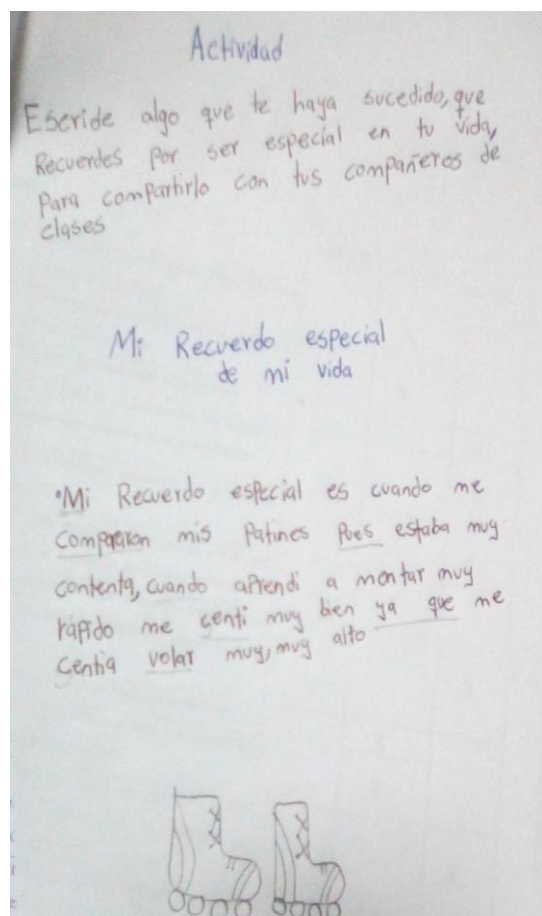 Actividad
Escride algo que te haya sucedido, que
Recuerdes por ser especial en tu vida,
para compartirlo con tus compañeros de
clases
Mi Recuerdo especial
de mi vida
Mi Recuerdo especial es cuando me
compraron mis patines pues estaba muy
contenta, cuando aprendi a montar muy
rápido me centi muy bien ya que me
centia volar muy, muy alto